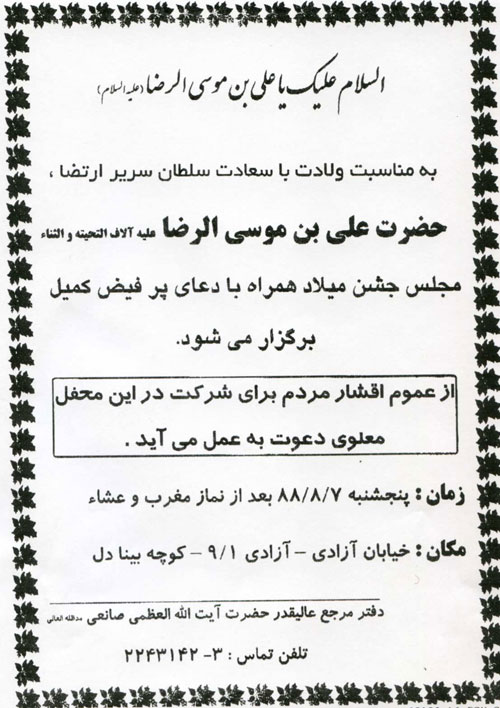 السلام علیک یا علی بن موسی الرضا (علیه السلام)
به مناسبت ولادت با سعادت سلطان سریر ارتضا ،
حضرت علی بن موسی الرضا علیه آلاف التحیته و الثناء
مجلس جشن میلاد همراه با دعای پر فیض کمیل
برگزار می شود.
از عموم اقشار مردم برای شرکت در این محفل
معلوی دعوت به عمل می آید .
زمان : پنجشنبه ۸۸/۸/۷ بعد از نماز مغرب و عشاء
مکان : خیابان آزادی - آزادی ۹/۱ - کوچه بینا دل
دفتر مرجع عالیقدر حضرت آیت الله العظمی صانعی مدظله العالی
تلفن تماس : ۳- ۲۲۴۳۱۴۲